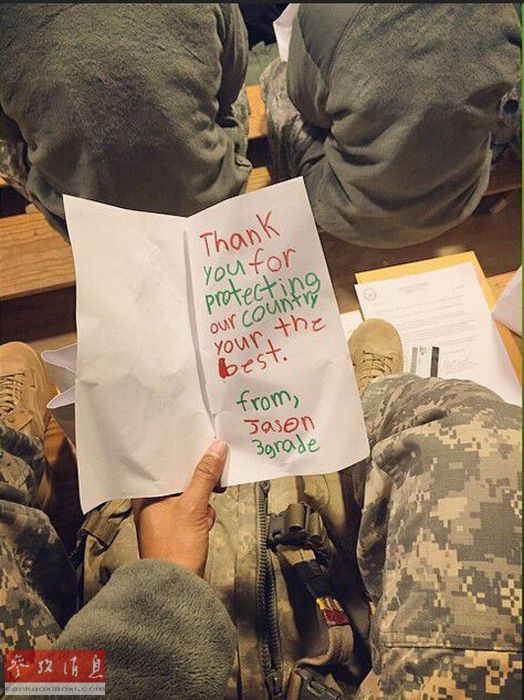 Thank
you for
protecting
our country
your the
best.
from,
Jason
3grade
参考消息
cankaoxiaoxi.com